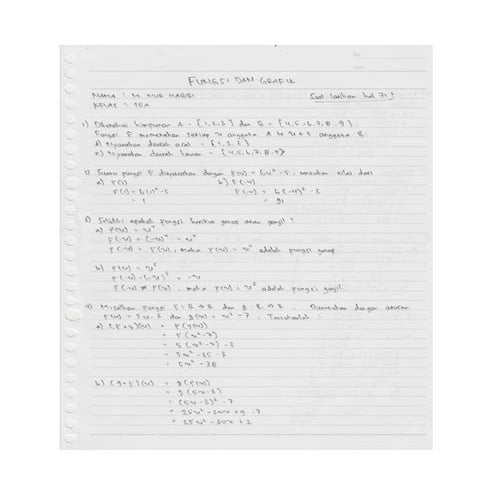 FUNGSI DAN GRAFIK
NAMA : M. NUR HABIBI
Soal latihan hal 71
KELAS : IPA
1) Diketahui himpunan A = {1,2,3} dan B = {4,5,6,7,8,9}
Fungsi F memetakan setiap x anggota A ke x+5 anggota B.
Nyatakan daerah asal = {1,2,3}
Nyatakan daerah = {4,5,6,7,8,9}
2) Suatu fungsi F dinyatakan dengan F(x) = 6x² - 5, tentukan nilai dari
a) F(1) b) F(-4)
F(1) = 6(1)² - 5 F(-4) = 6(-4)² - 5
= 1 = 91
3) Selidiki apakah fungsi berikut genap atau ganjil!
a) F(x) = x²
F(-x) = (-x)² = x²
F(-x) = F(x), maka F(x) = x² adalah fungsi genap
b) F(x) = x³
F(-x) = (-x)³ = -x
F(-x) ≠ F(x), maka F(x) = x³ adalah fungsi ganjil
4) Misalkan fungsi F : R → R dan g : R → R Ditentukan dengan aturan
F(x) = 5x - 3 dan g(x) = x² - 7. Tentukanlah :
a) (F∘g)(x) = F(g(x))
= F(x²-7)
= 5(x²-7) - 3
= 5x² - 35 - 3
= 5x² - 38
b) (g∘F)(x) = g(F(x))
= g(5x-3)
= (5x-3)² - 7
= 25x² - 30x + 9 - 7
= 25x² - 30x + 2